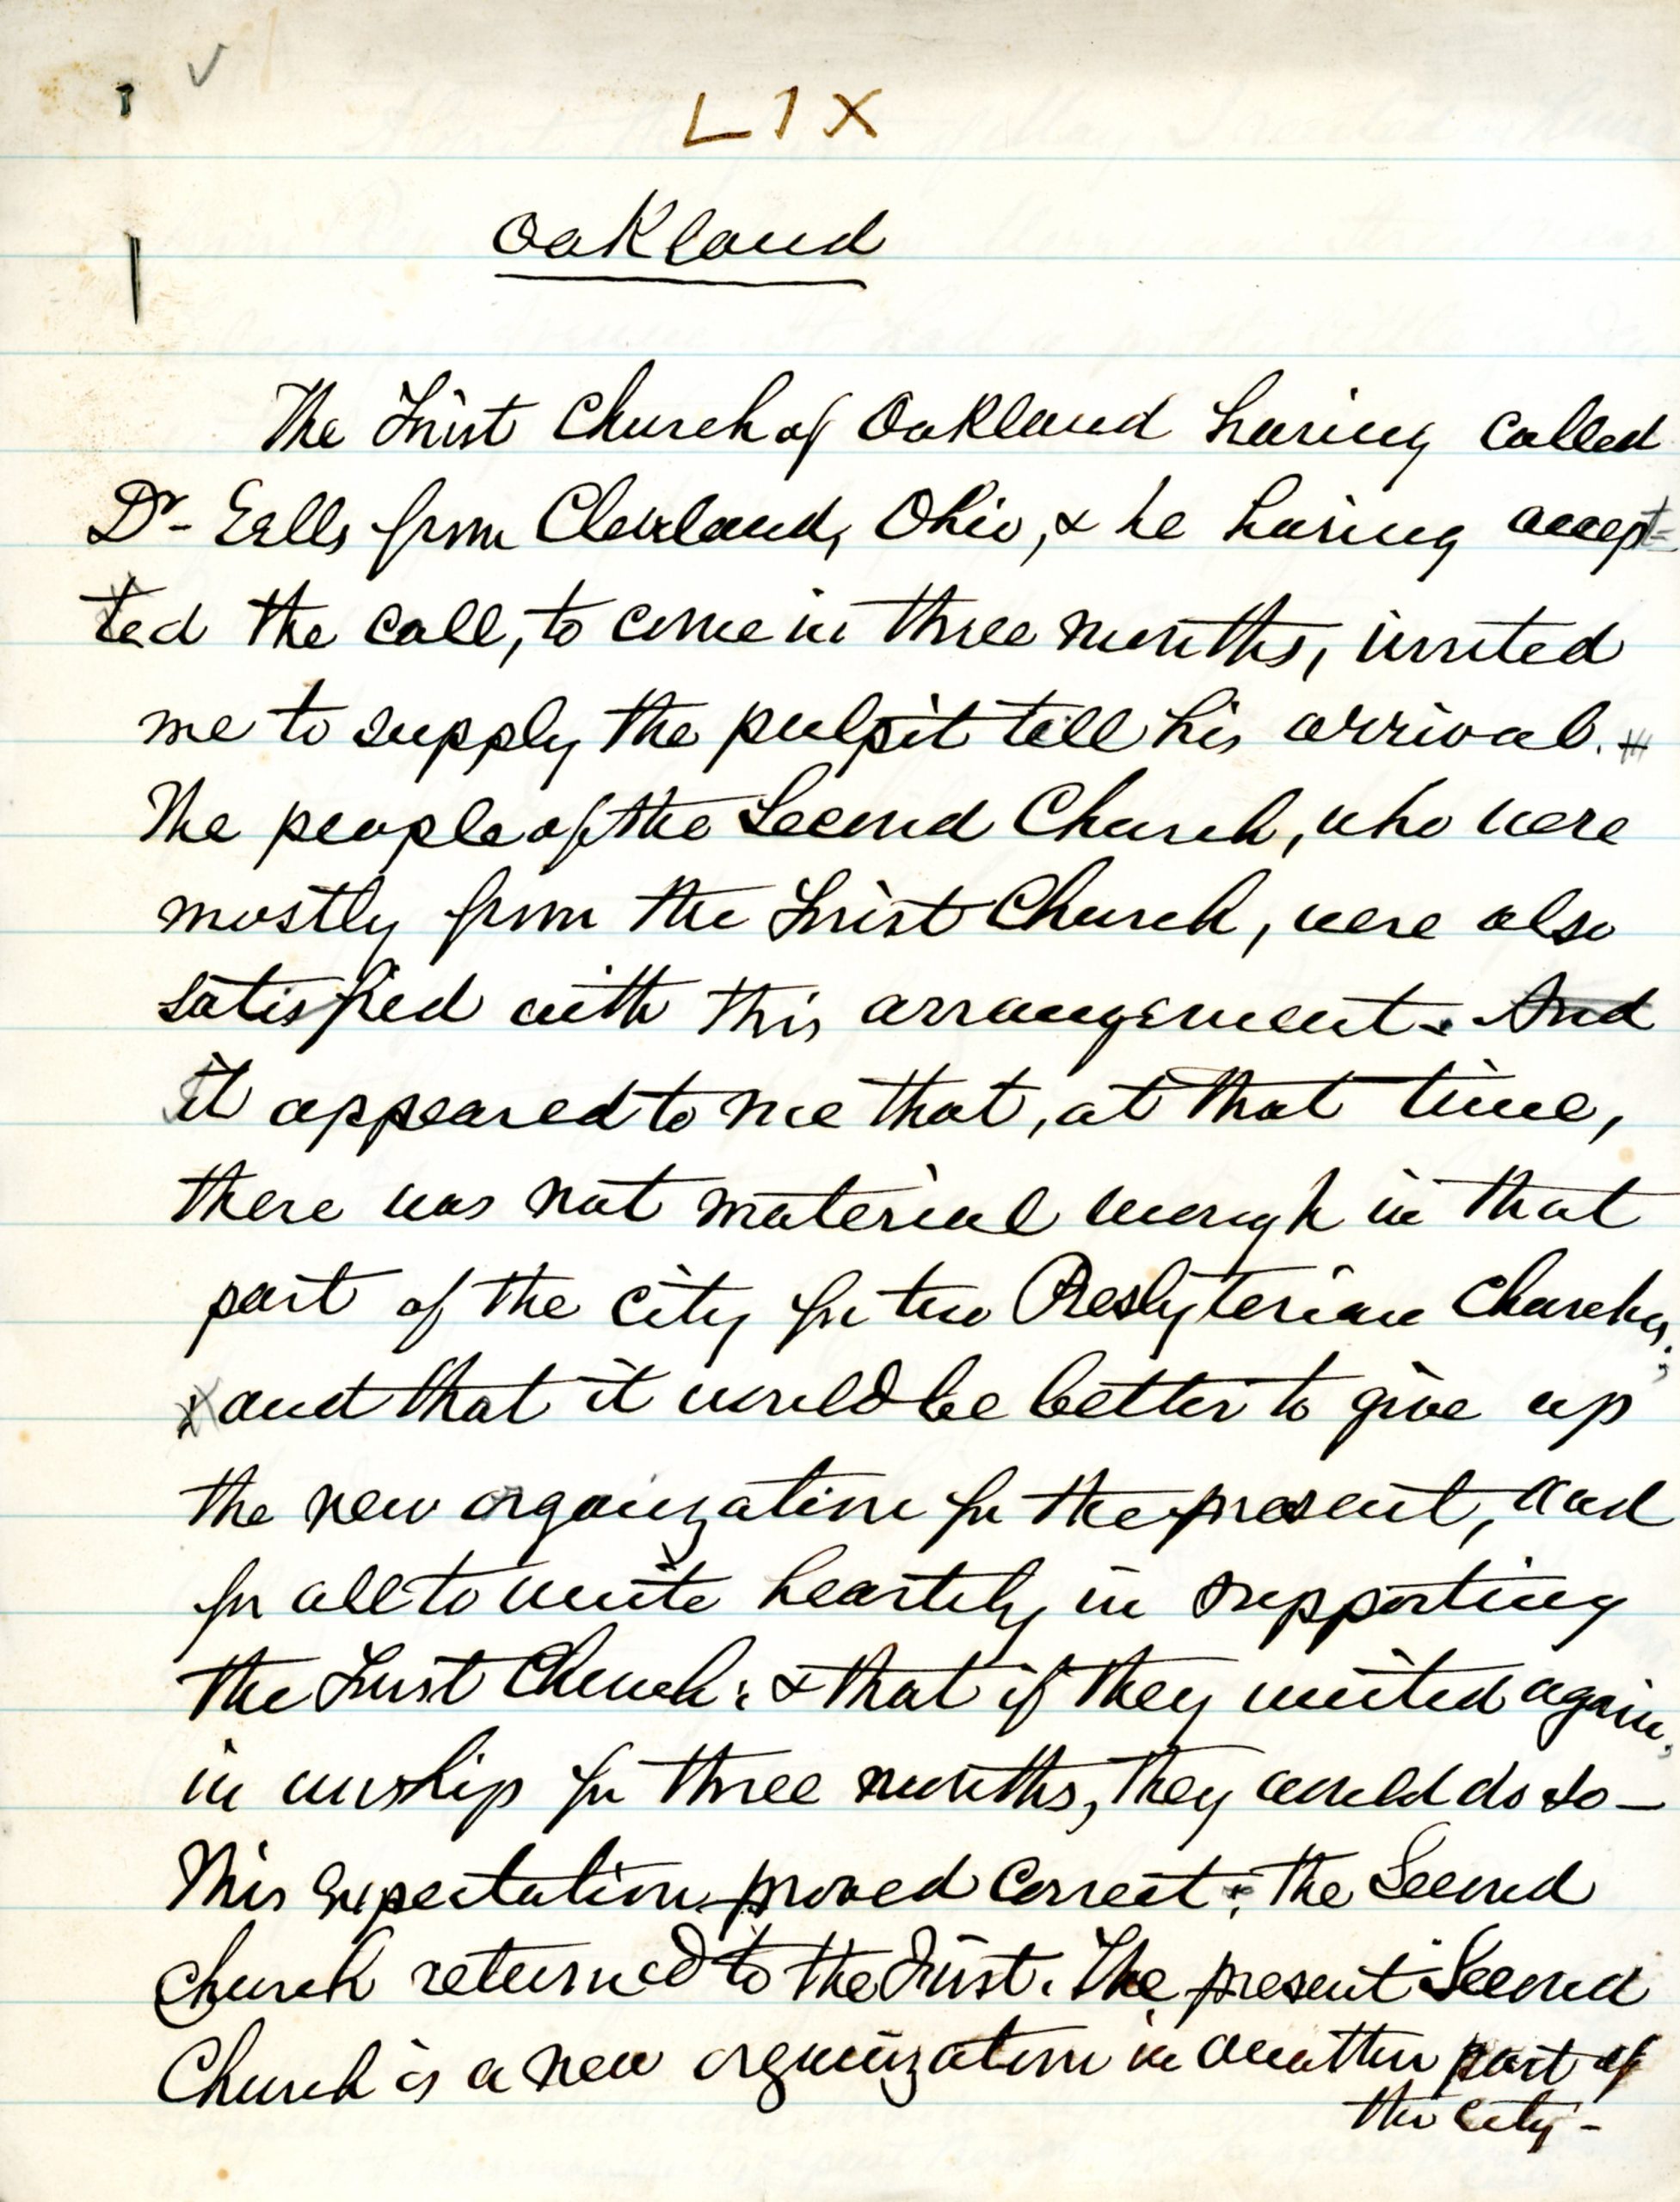 LIX
Oakland
The First Church of Oakland having called
Dr- Eells from Cleveland, Ohio, & he having accept=
ted the call, to come in three months, invited
me to supply the pulpit till his arrival.
The people of the Second Church, who were
mostly from the First Church, were also
satisfied with this arrangement. And
it appeared to me that, at that time,
there was not material enough in that
part of the city for two Presbyterian Churches;
and that it would be better to give up
the new organization for the present, and
for all to unite heartily in supporting
the First Church: & that if they united again,
in worship for three months, they would do so —
This expectation proved correct; the Second
Church returned to the First. The present Second
Church is a new organization in another part of
the city -